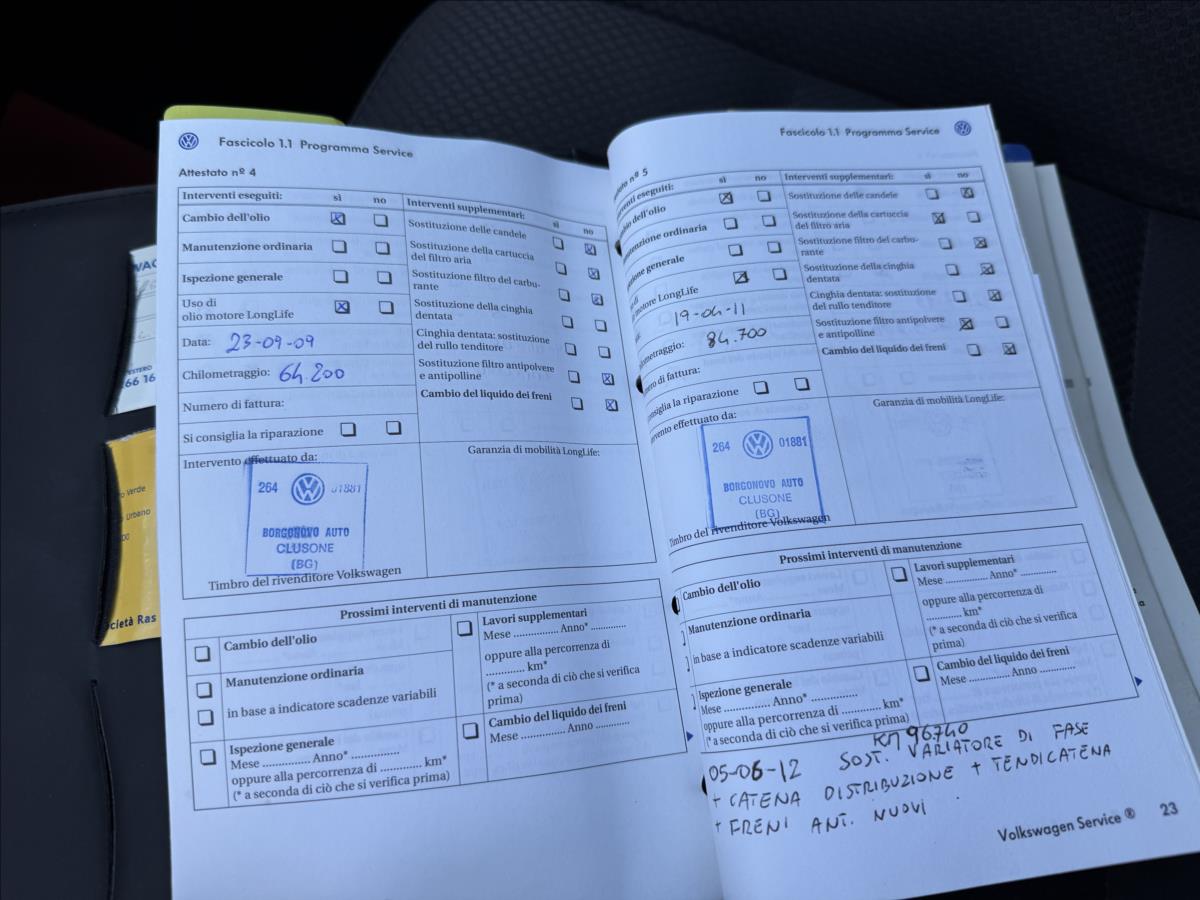 Fascicolo 1.1 Programma Service
Attestato nº 4
Interventi eseguiti: sì no
Cambio dell'olio
Manutenzione ordinaria
Ispezione generale
Uso di
olio motore LongLife
Data: 23-09-09
Chilometraggio: 64.200
Numero di fattura:
Si consiglia la riparazione
Interventi supplementari: sì no
Sostituzione delle candele
Sostituzione della cartuccia
del filtro aria
Sostituzione filtro del carbu-
rante
Sostituzione della cinghia
dentata
Cinghia dentata: sostituzione
del rullo tenditore
Sostituzione filtro antipolvere
e antipolline
Cambio del liquido dei freni
Intervento effettuato da:
264 01881
BORGONOVO AUTO
CLUSONE
(BG)
Timbro del rivenditore Volkswagen
Garanzia di mobilità LongLife:
Prossimi interventi di manutenzione
Cambio dell'olio
Manutenzione ordinaria
in base a indicatore scadenze variabili
Ispezione generale
Mese .............. Anno* ..............
oppure alla percorrenza di ............ km*
(* a seconda di ciò che si verifica prima)
Lavori supplementari
Mese .............. Anno* ............
oppure alla percorrenza di
............ km*
(* a seconda di ciò che si verifica
prima)
Cambio del liquido dei freni
Mese ............. Anno ............
Fascicolo 1.1 Programma Service
nº 5
eseguiti: sì no
dell'olio
ordinaria
generale
motore LongLife
19-04-11
84.700
di fattura:
consiglia la riparazione
Interventi supplementari: sì no
Sostituzione delle candele
Sostituzione della cartuccia
del filtro aria
Sostituzione filtro del carbu-
rante
Sostituzione della cinghia
dentata
Cinghia dentata: sostituzione
del rullo tenditore
Sostituzione filtro antipolvere
e antipolline
Cambio del liquido dei freni
effettuato da:
264 01881
BORGONOVO AUTO
CLUSONE
(BG)
Timbro del rivenditore Volkswagen
Garanzia di mobilità LongLife:
Prossimi interventi di manutenzione
Cambio dell'olio
Manutenzione ordinaria
in base a indicatore scadenze variabili
Ispezione generale
Mese .............. Anno* ..............
oppure alla percorrenza di ............ km*
(* a seconda di ciò che si verifica prima)
Lavori supplementari
Mese .............. Anno* ............
oppure alla percorrenza di
............ km*
(* a seconda di ciò che si verifica
prima)
Cambio del liquido dei freni
Mese ............. Anno ............
KM 96740
05-06-12 SOST. VARIATORE DI FASE
+ CATENA DISTRIBUZIONE + TENDICATENA
+ FRENI ANT. NUOVI.
Volkswagen Service ® 23
Verde
Urbano
cietà Ras
66 16